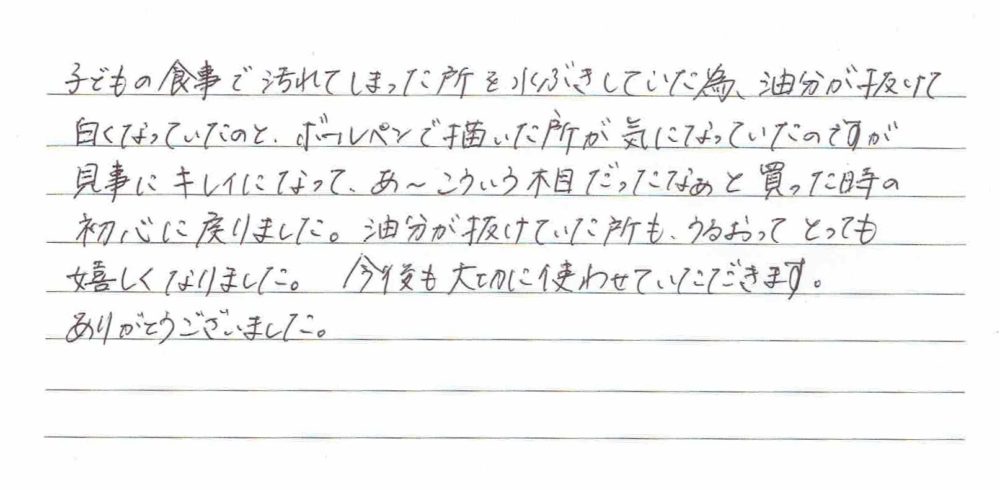 子どもの食事で汚れてしまった所を水ぶきしていた為、油分が抜けて
白くなっていたのと、ボールペンで描いた所が気になっていたのですが
見事にキレイになって、あ〜こういう木目だったなぁと買った時の
初心に戻りました。油分が抜けていた所も、うるおってとっても
嬉しくなりました。 今後も大切に使わせていただきます。
ありがとうございました。